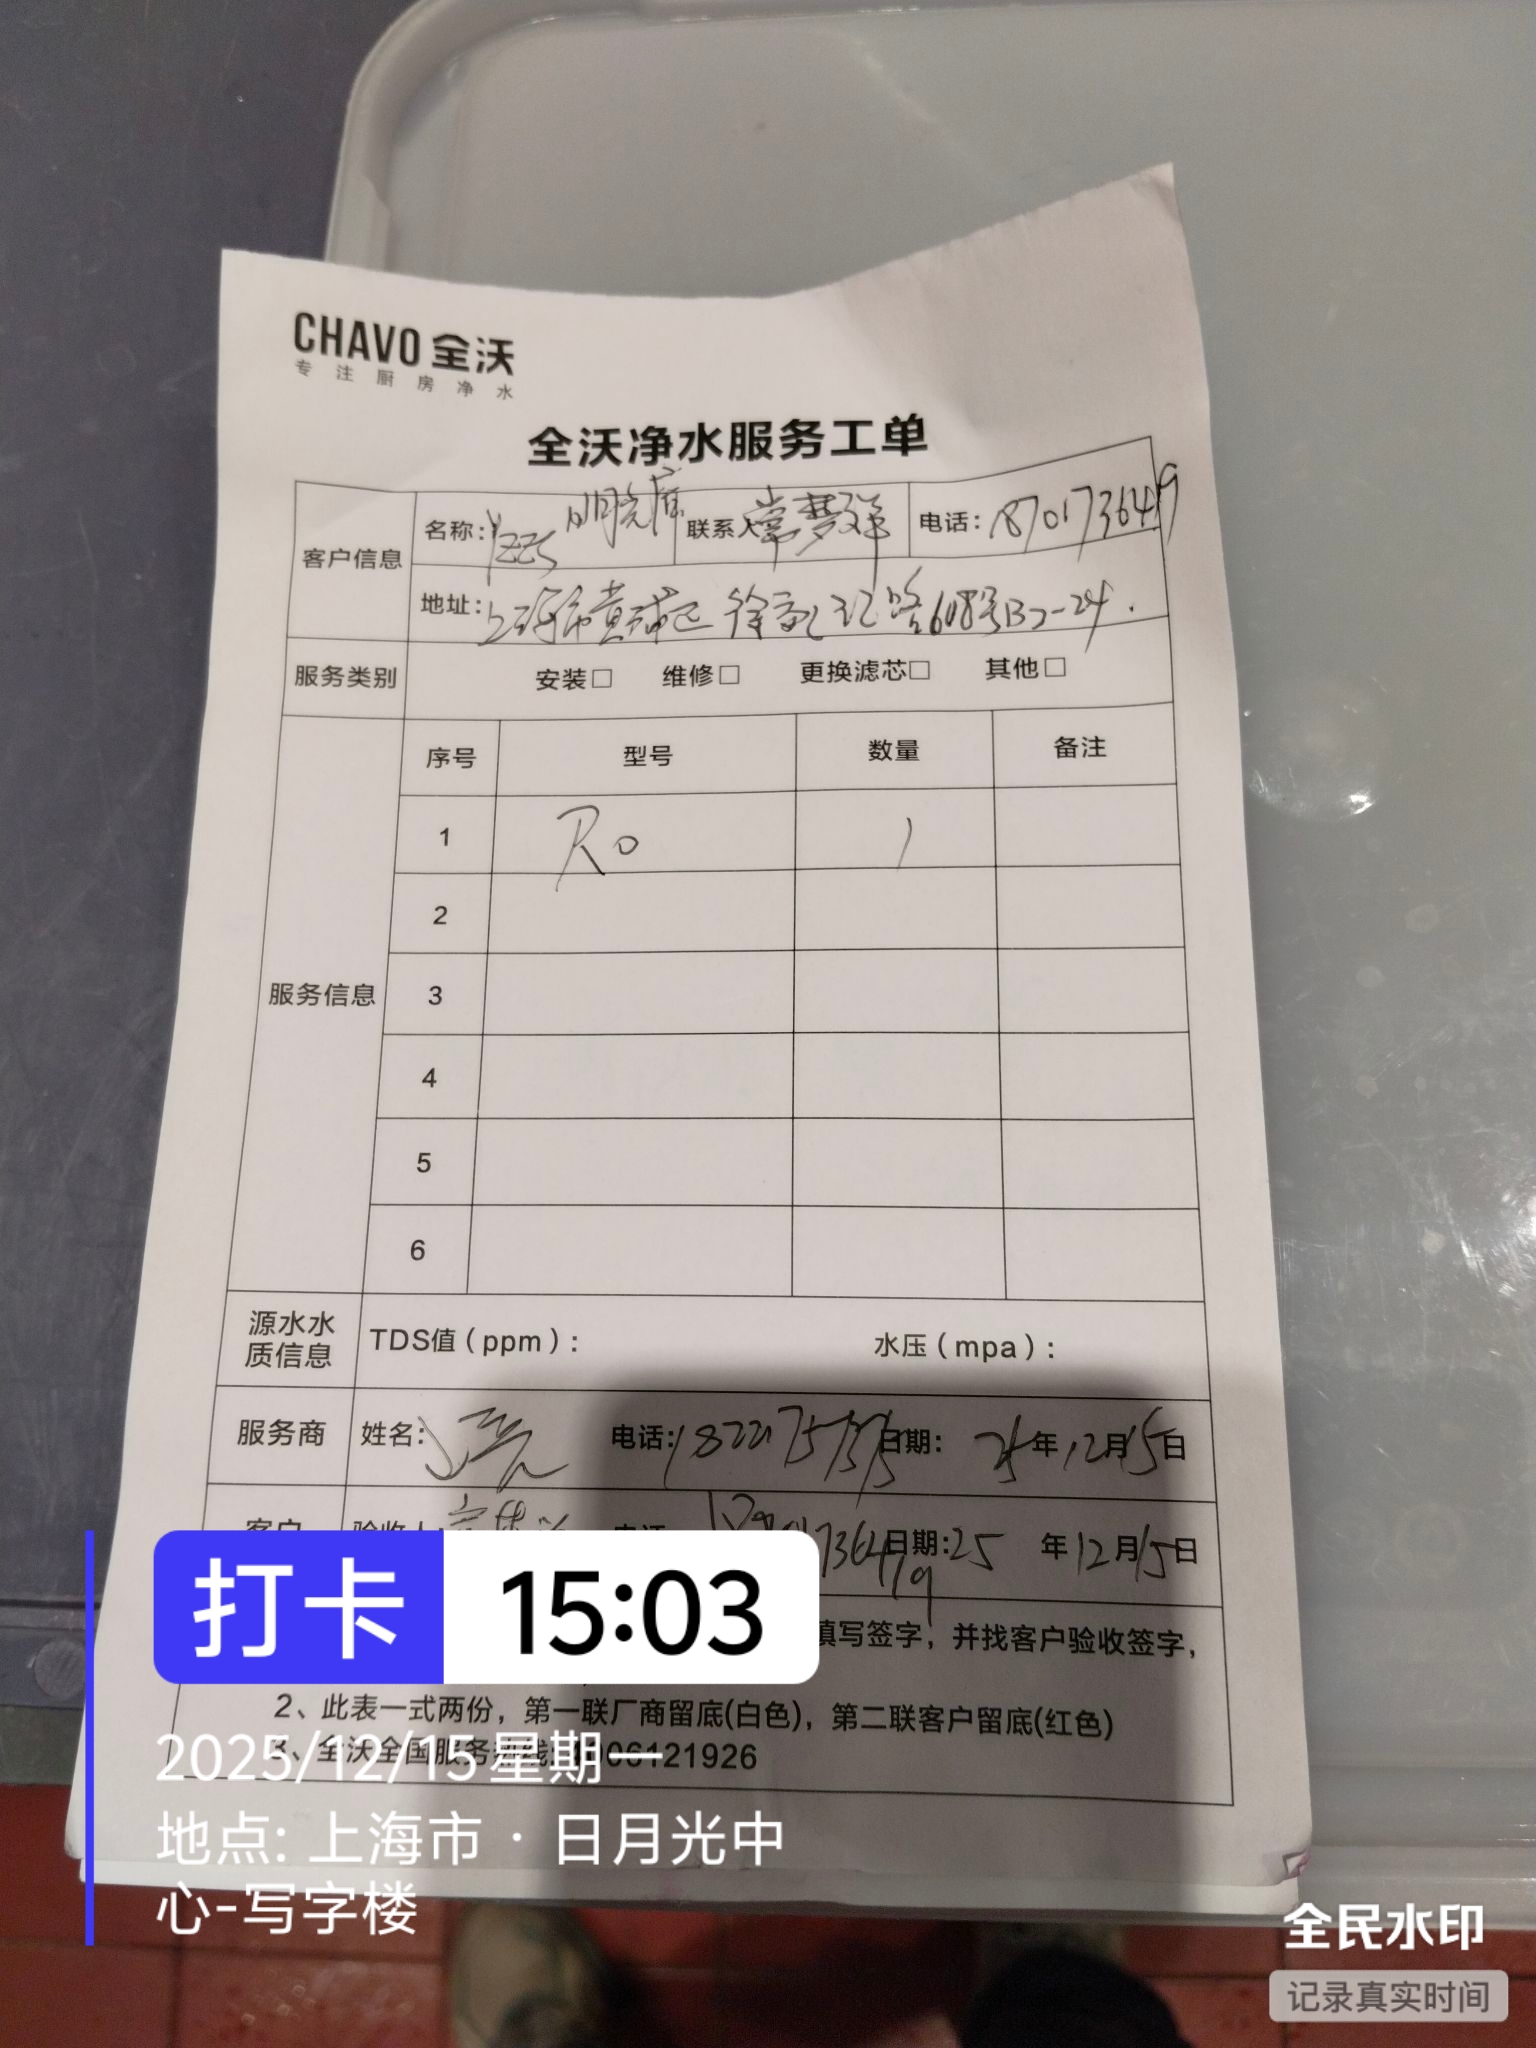 CHAVO 全沃
专注厨房净水
全沃净水服务工单
客户信息 名称: 联系人 常梦洋 电话: 18701736419
地址: 上海市黄浦区徐家汇路608号B2-24.
服务类别 安装□ 维修□ 更换滤芯□ 其他□
服务信息 序号 型号 数量 备注
1 RO 1
2
3
4
5
6
源水水质信息 TDS值(ppm): 水压(mpa):
服务商 姓名: 电话: 日期: 25年12月15日
客户 验收人 日期:25年12月15日
填写签字,并找客户验收签字,
2、此表一式两份,第一联厂商留底(白色),第二联客户留底(红色)
3、全沃全国服务热线:4006121926
打卡 15:03
2025/12/15 星期一
地点: 上海市·日月光中
心-写字楼
全民水印
记录真实时间